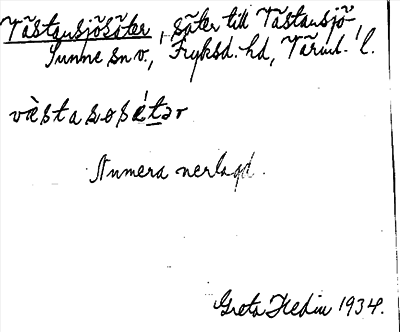 Västansjösäter, säter till Västansjö,
Sunne sn v., Fryksd. hd, Värml. l.
væ̀stasoṣét̲ər
Numera nerlagd.
Greta Hedin 1934.